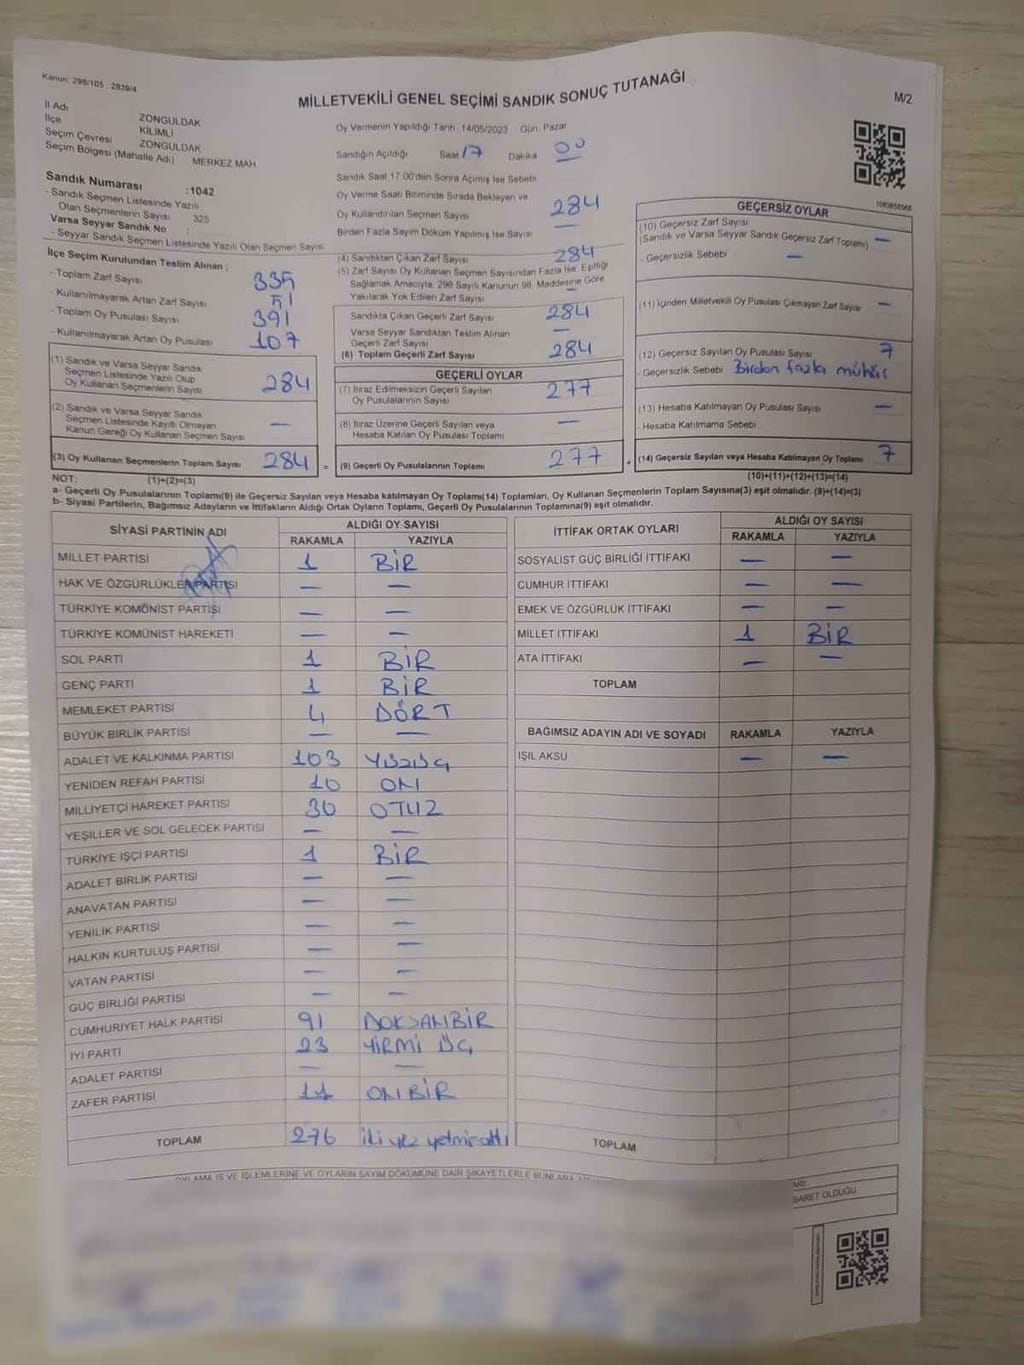 Kanun: 298/105 : 2839/4
MİLLETVEKİLİ GENEL SEÇİMİ SANDIK SONUÇ TUTANAĞI
M/2
İl Adı ZONGULDAK
İlçe KİLİMLİ
Seçim Çevresi ZONGULDAK
Seçim Bölgesi (Mahalle Adı) MERKEZ MAH.
Sandık Numarası :1042
- Sandık Seçmen Listesinde Yazılı
Olan Seçmenlerin Sayısı 325
Varsa Seyyar Sandık No :
- Seyyar Sandık Seçmen Listesinde Yazılı Olan Seçmen Sayısı
İlçe Seçim Kurulundan Teslim Alınan :
- Toplam Zarf Sayısı 335
- Kullanılmayarak Artan Zarf Sayısı 51
- Toplam Oy Pusulası Sayısı 391
- Kullanılmayarak Artan Oy Pusulası 107
(1) Sandık ve Varsa Seyyar Sandık
Seçmen Listesinde Yazılı Olup
Oy Kullanan Seçmenlerin Sayısı 284
(2) Sandık ve Varsa Seyyar Sandık
Seçmen Listesinde Kayıtlı Olmayan
Kanun Gereği Oy Kullanan Seçmen Sayısı —
(3) Oy Kullanan Seçmenlerin Toplam Sayısı 284 =
(1)+(2)=(3)
Oy Vermenin Yapıldığı Tarih: 14/05/2023 Gün: Pazar
Sandığın Açıldığı Saat 17 Dakika 00
Sandık Saat 17:00'den Sonra Açılmış İse Sebebi
Oy Verme Saati Bitiminde Sırada Bekleyen ve
Oy Kullandırılan Seçmen Sayısı 284
Birden Fazla Sayım Döküm Yapılmış İse Sayısı —
(4) Sandıktan Çıkan Zarf Sayısı 284
(5) Zarf Sayısı Oy Kullanan Seçmen Sayısından Fazla İse, Eşitliği
Sağlamak Amacıyla, 298 Sayılı Kanunun 98. Maddesine Göre
Yakılarak Yok Edilen Zarf Sayısı —
Sandıkta Çıkan Geçerli Zarf Sayısı 284
Varsa Seyyar Sandıktan Teslim Alınan
Geçerli Zarf Sayısı —
(6) Toplam Geçerli Zarf Sayısı 284
GEÇERLİ OYLAR
(7) İtiraz Edilmeksizin Geçerli Sayılan
Oy Pusulalarının Sayısı 277
(8) İtiraz Üzerine Geçerli Sayılan veya
Hesaba Katılan Oy Pusulası Toplamı —
(9) Geçerli Oy Pusulalarının Toplamı 277 +
1083656568
GEÇERSİZ OYLAR
(10) Geçersiz Zarf Sayısı
(Sandık ve Varsa Seyyar Sandık Geçersiz Zarf Toplamı) —
- Geçersizlik Sebebi —
(11) İçinden Milletvekili Oy Pusulası Çıkmayan Zarf Sayısı —
(12) Geçersiz Sayılan Oy Pusulası Sayısı 7
- Geçersizlik Sebebi Birden fazla mühür
(13) Hesaba Katılmayan Oy Pusulası Sayısı —
- Hesaba Katılmama Sebebi
(14) Geçersiz Sayılan veya Hesaba Katılmayan Oy Toplamı 7
(10)+(11)+(12)+(13)=(14)
NOT:
a- Geçerli Oy Pusulalarının Toplamı(9) ile Geçersiz Sayılan veya Hesaba katılmayan Oy Toplamı(14) Toplamları, Oy Kullanan Seçmenlerin Toplam Sayısına(3) eşit olmalıdır. (9)+(14)=(3)
b- Siyasi Partilerin, Bağımsız Adayların ve İttifakların Aldığı Ortak Oyların Toplamı, Geçerli Oy Pusulalarının Toplamına(9) eşit olmalıdır.
SİYASİ PARTİNİN ADI ALDIĞI OY SAYISI
RAKAMLA YAZIYLA
MİLLET PARTİSİ 1 BİR
HAK VE ÖZGÜRLÜKLER PARTİSİ — —
TÜRKİYE KOMÜNİST PARTİSİ — —
TÜRKİYE KOMÜNİST HAREKETİ — —
SOL PARTİ 1 BİR
GENÇ PARTİ 1 BİR
MEMLEKET PARTİSİ 4 DÖRT
BÜYÜK BİRLİK PARTİSİ — —
ADALET VE KALKINMA PARTİSİ 103 YÜZÜÇ
YENİDEN REFAH PARTİSİ 10 ON
MİLLİYETÇİ HAREKET PARTİSİ 30 OTUZ
YEŞİLLER VE SOL GELECEK PARTİSİ — —
TÜRKİYE İŞÇİ PARTİSİ 1 BİR
ADALET BİRLİK PARTİSİ — —
ANAVATAN PARTİSİ — —
YENİLİK PARTİSİ — —
HALKIN KURTULUŞ PARTİSİ — —
VATAN PARTİSİ — —
GÜÇ BİRLİĞİ PARTİSİ — —
CUMHURİYET HALK PARTİSİ 91 DOKSANBİR
İYİ PARTİ 23 YİRMİ ÜÇ
ADALET PARTİSİ — —
ZAFER PARTİSİ 11 ONBİR
TOPLAM 276 iki yüz yetmişaltı
İTTİFAK ORTAK OYLARI ALDIĞI OY SAYISI
RAKAMLA YAZIYLA
SOSYALİST GÜÇ BİRLİĞİ İTTİFAKI — —
CUMHUR İTTİFAKI — —
EMEK VE ÖZGÜRLÜK İTTİFAKI — —
MİLLET İTTİFAKI 1 BİR
ATA İTTİFAKI — —
TOPLAM
BAĞIMSIZ ADAYIN ADI VE SOYADI RAKAMLA YAZIYLA
IŞIL AKSU — —
TOPLAM
OYLAMA İŞ VE İŞLEMLERİNE VE OYLARIN SAYIM DÖKÜMÜNE DAİR ŞİKAYETLERLE BUNLARA
BARET OLDUĞU